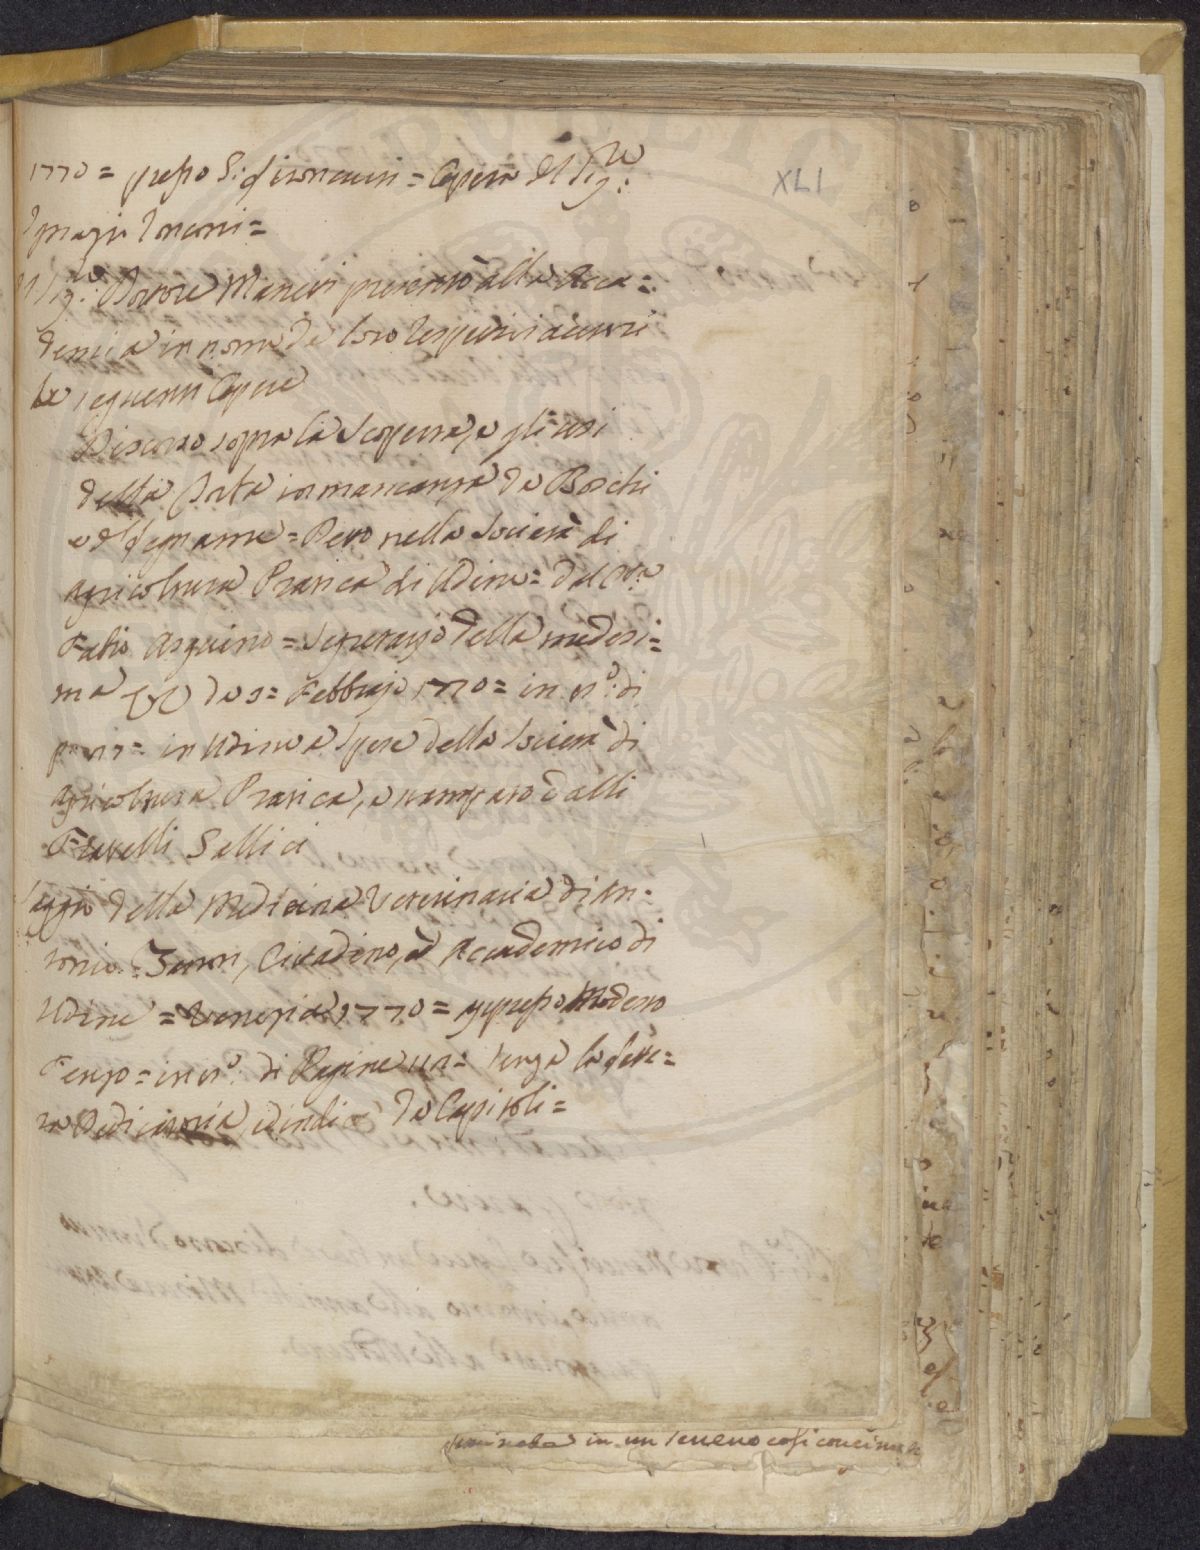 XLI
1770 = presso = Opera del Sig:re
Ignazio Ronconi =
Il Sig:r Dottore Manetti presentò alla Acca=
demia in nome de loro respettivi autori
le seguenti Opere
Discorso sopra la Scoperta, e gli usi
della Torba in mancanza de Boschi
e di Legname = Detto nella Società di
agricoltura Pratica di Udine = dal
Fabio Asquino = Segretario della medesi=
ma de 3 = Febbraio 1770 = in n°: di
pa in Udine a Spese della Società di
agricoltura Pratica, e stampato dalli
Fratelli Gallici
Saggio della Medicina Veterinaria di An=
tonio = Zanon, Cittadino, ed Accademico di
Udine = Venezia 1770 = appresso Modesto
Fenzo = in n°: di Pagine = senza la lette=
ra Dedicatoria, e indice de Capitoli =
in un terreno così